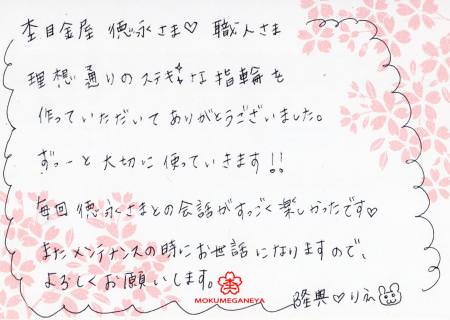 杢目金屋 徳永さま♡ 職人さま
理想通りのステキな指輪を
作っていただいてありがとうございました。
ずっーと大切に使っていきます!!
毎回徳永さまとの会話がすっごく楽しかったです♡
またメンテナンスの時にお世話になりますので、
よろしくお願いします。
MOKUMEGANEYA
隆典♡りえ